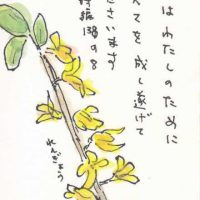 はわたしのために
てを成し遂げて
さいます
詩編138の8
れんぎょう